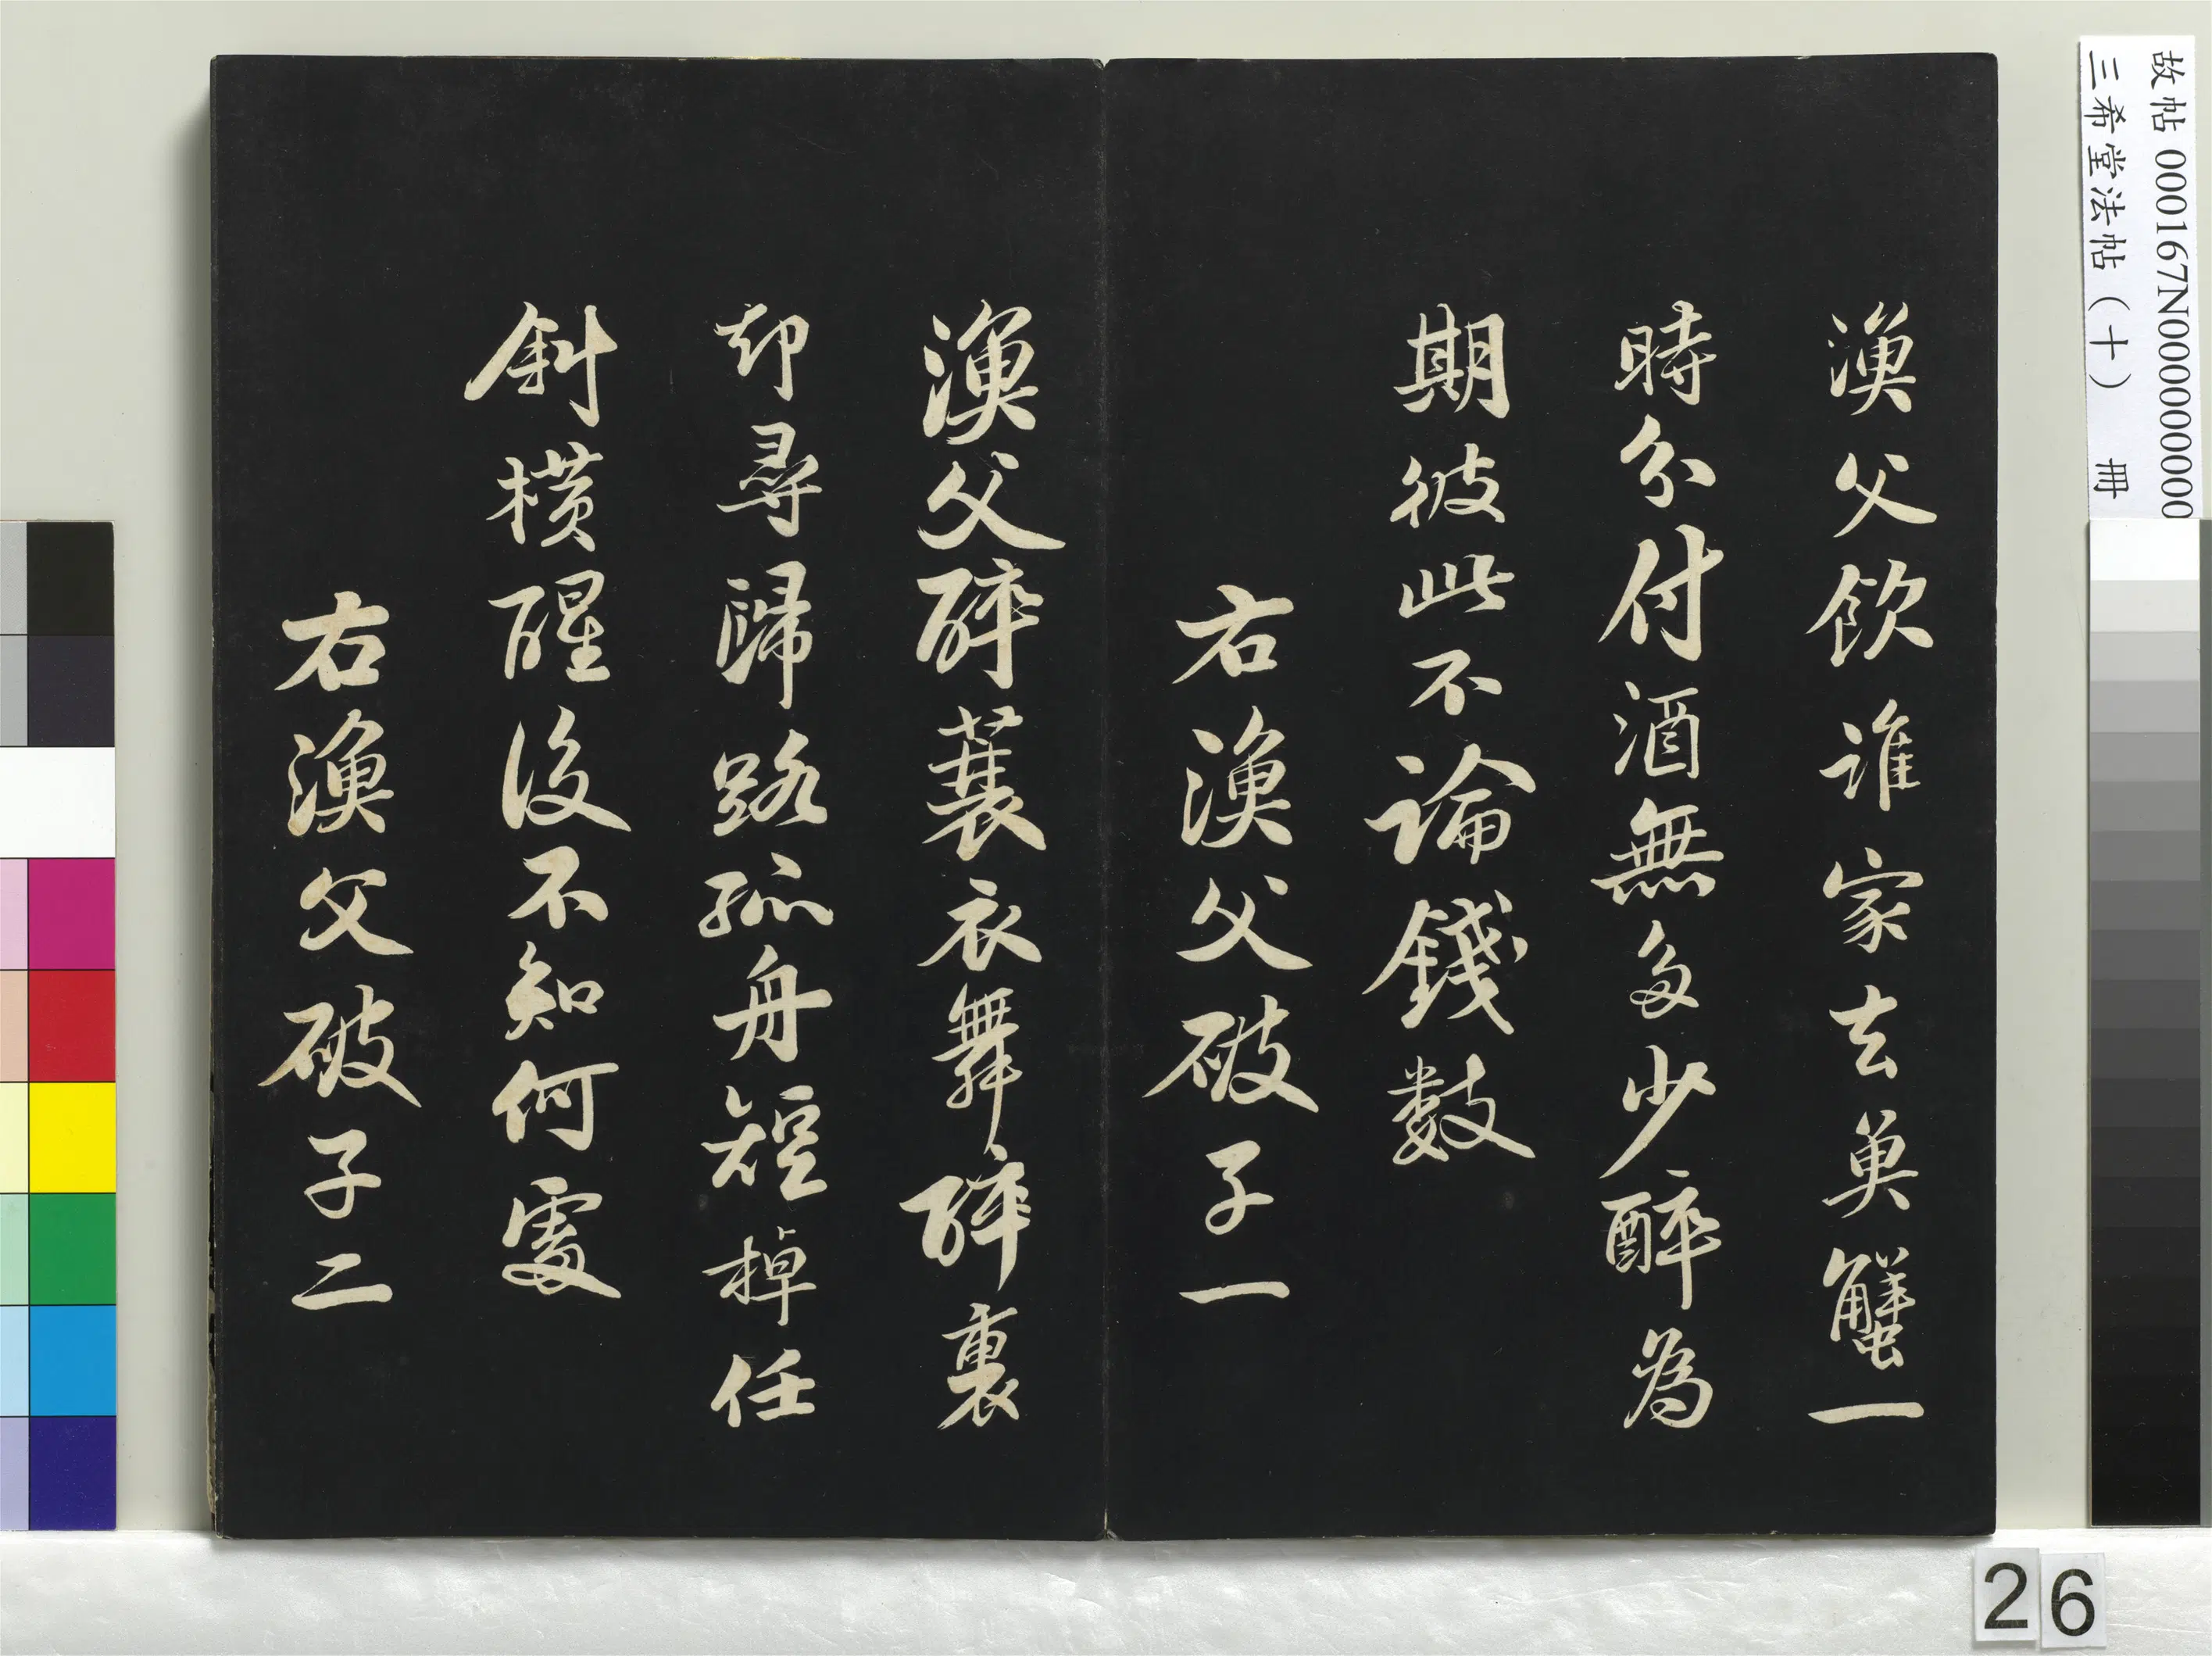 漁父飲誰家去魚蟹一
時分付酒無多少醉為
期彼此不論錢數
右漁父破子一
漁父醉蓑衣舞醉裏
却尋歸路孤舟短棹任
斜橫醒後不知何處
右漁父破子二
故帖 000167N000000000
三希堂法帖（十） 冊
26